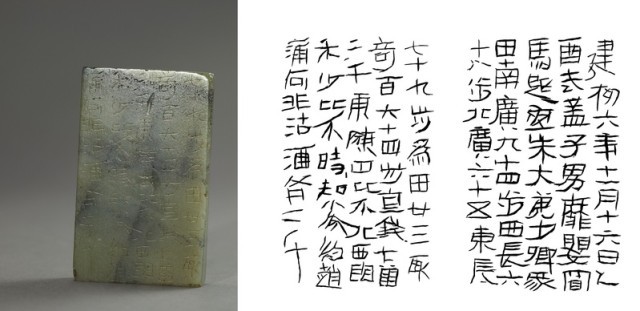 建初六年十一月十六日乙
酉武孟子男靡嬰買
馬熙宜朱大弟少卿冢
田南廣九十四步西長六
十八步北廣六十五東長
七十九步為田廿三畝
奇百六十四步直錢十萬
二千東陳田比介北西南
朱少比介時知券約趙
滿何非沽酒各二千